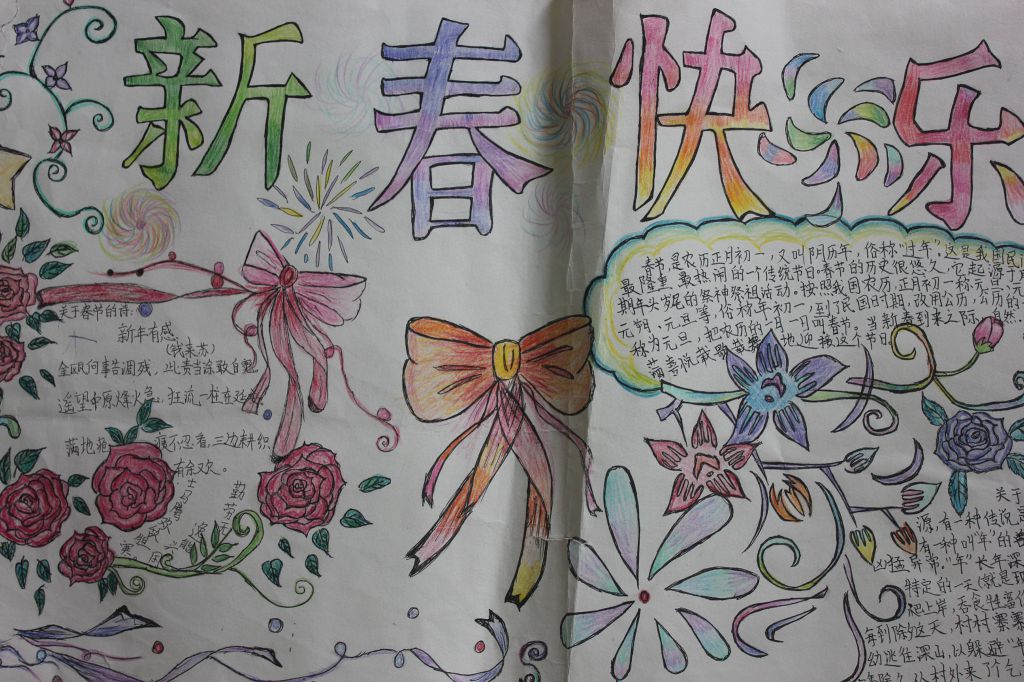 新春快乐
关于春节的诗:
新年有感
(钱来苏)
金瓯何事告凋残,此责当涂敢自宽
遥望中原烽火急,狂流一柱在延安
满地疮 痍不忍看,三边耕织
有余欢。
勤劳
春节是农历正月初一,又叫阴历年,俗称“过年”,这是我国民间
最隆重、最热闹的一个传统节日。春节的历史很悠久,它起源于
期年头岁尾的祭神祭祖活动。按照我国农历,正月初一称元旦、元
元朔、元旦等,俗称年初一,到了民国时期,改用公历,公历的一
称为元旦,把农历的一月一日叫春节。当新春到来之际,自然
喜 地迎接这个节日
关于
源,有一种传说,
有一种叫“年”的
凶猛异常。“年”长年深
特定的一天(就是现
爬上岸,吞食牲畜
年到除夕这天,村村寨寨
幼逃往深山,以躲避“年
年除夕,从村外来了个乞